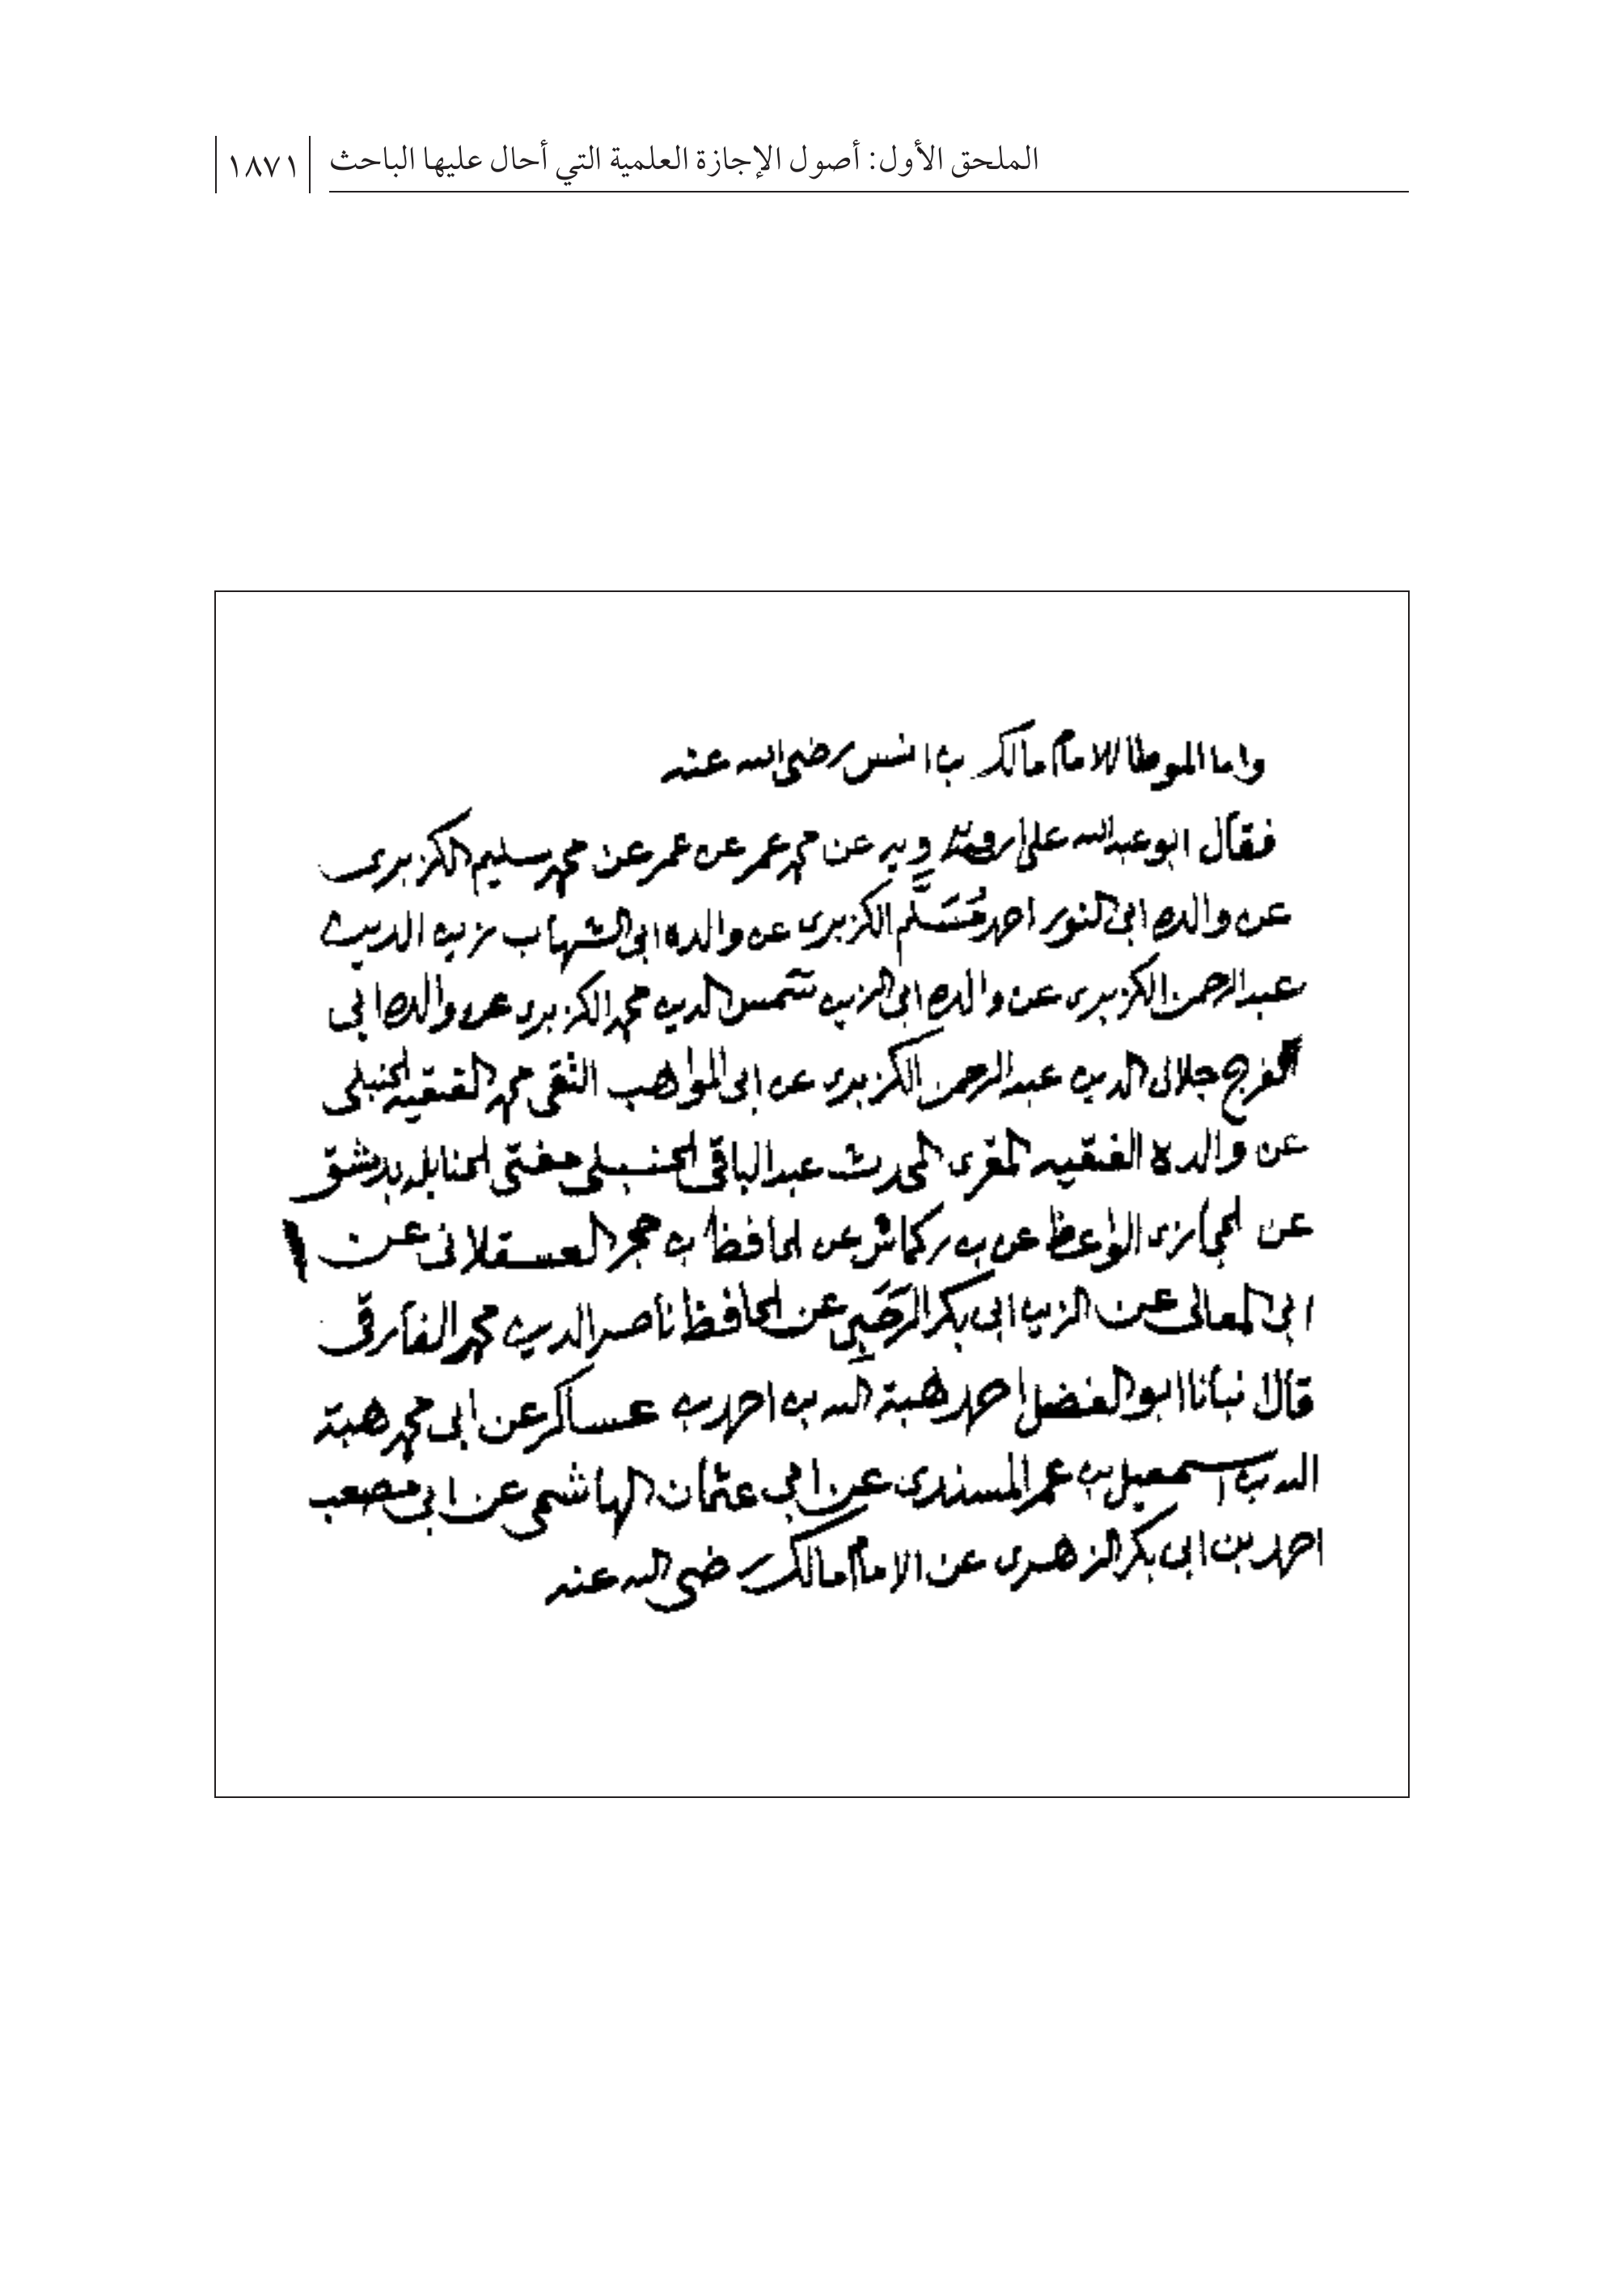 الملحق الأول: أصول الإجازة العلمية التي أحال عليها الباحث ١٨٧١
واما الموطا للامام مالك بن انس رضي الله عنه
فقال ابو عبد الله على عن محمد عمر عن عمر عن محمد سليم الكزبرى
عن والده ابى النور احمد مُسَلَّم الكزبرى عن والده ابى الشهاب زين الدين
عبد الرحمن الكزبرى عن والده ابى الزين شمس الدين محمد الكزبرى عن والده ابى
الفرج جلال الدين عبد الرحمن الكزبرى عن ابى المواهب التقى محمد الفقيه الحنبلى
عن والده الفقيه المقرى المحدث عبد الباقى الحنبلى مفتى الحنابله بدمشق
عن الحجازى الواعظ عن بن اركماش عن الحافظ بن حجر العسقلانى عن
ابى المعالى عن الزين ابى بكر الرَّحَبِي عن الحافظ ناصر الدين محمد الفارقى
قالا نبأنا ابو الفضل احمد هبة الله بن احمد بن عساكر عن ابى محمد هبة
الله بن اسمعيل بن عمر المسندى عن ابى عثمان الهاشمى عن ابى مصعب
احمد بن ابى بكر الزهرى عن الامام مالك رضى الله عنه